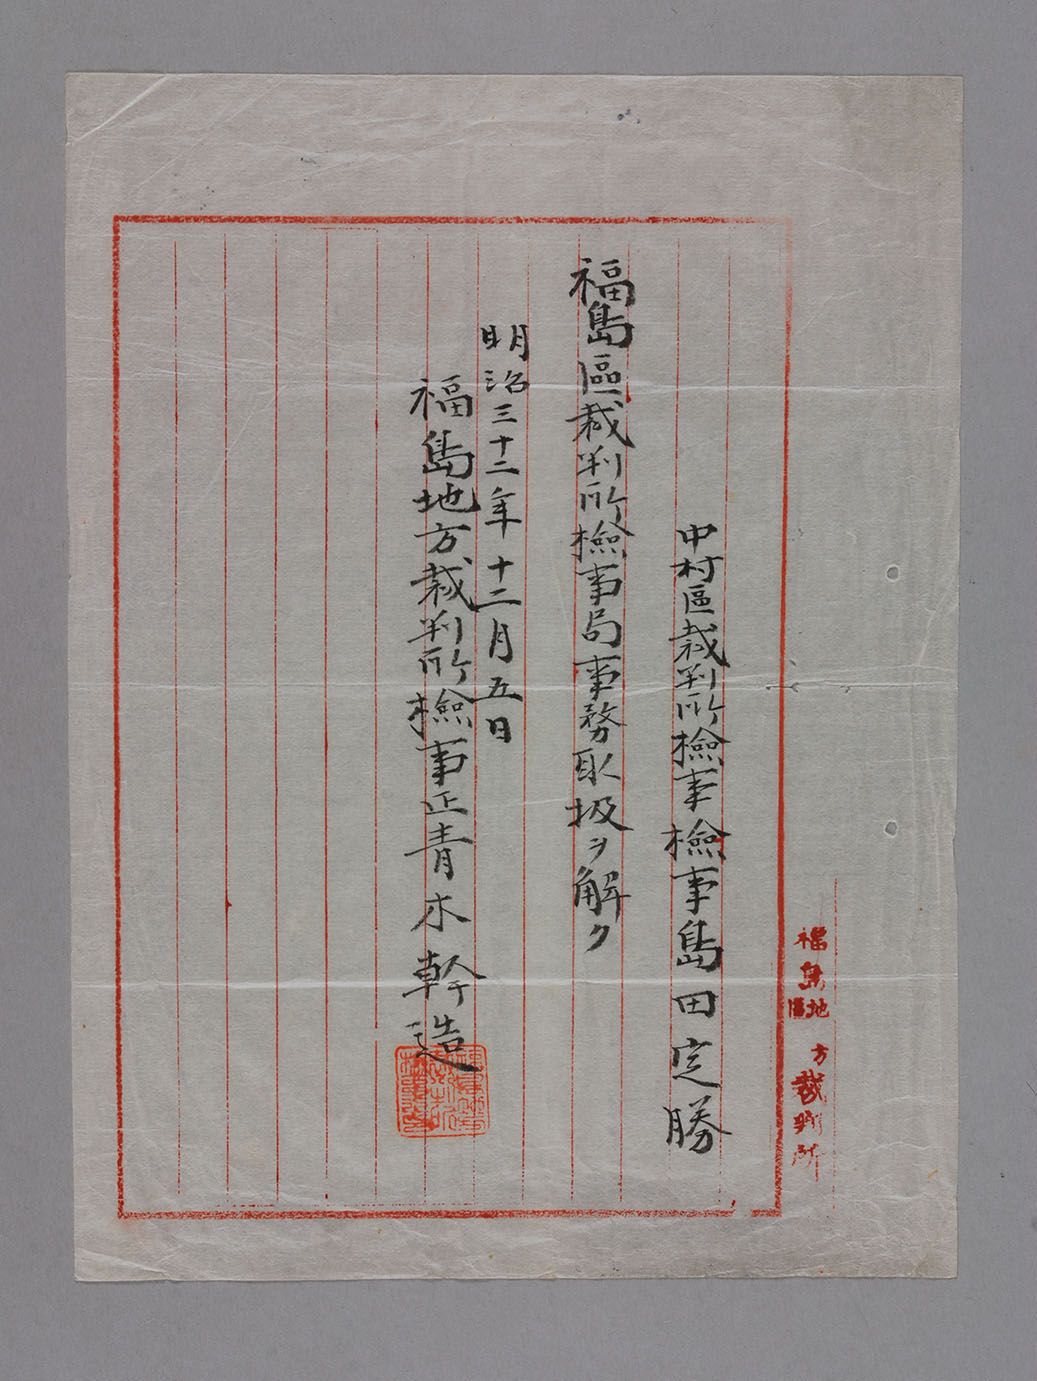 中村區裁判所檢事檢事島田定勝
福島區裁判所檢事局事務取扱ヲ解ク
明治三十二年十二月五日
福島地方裁判所檢事正青木幹造
福島地方裁判所
區